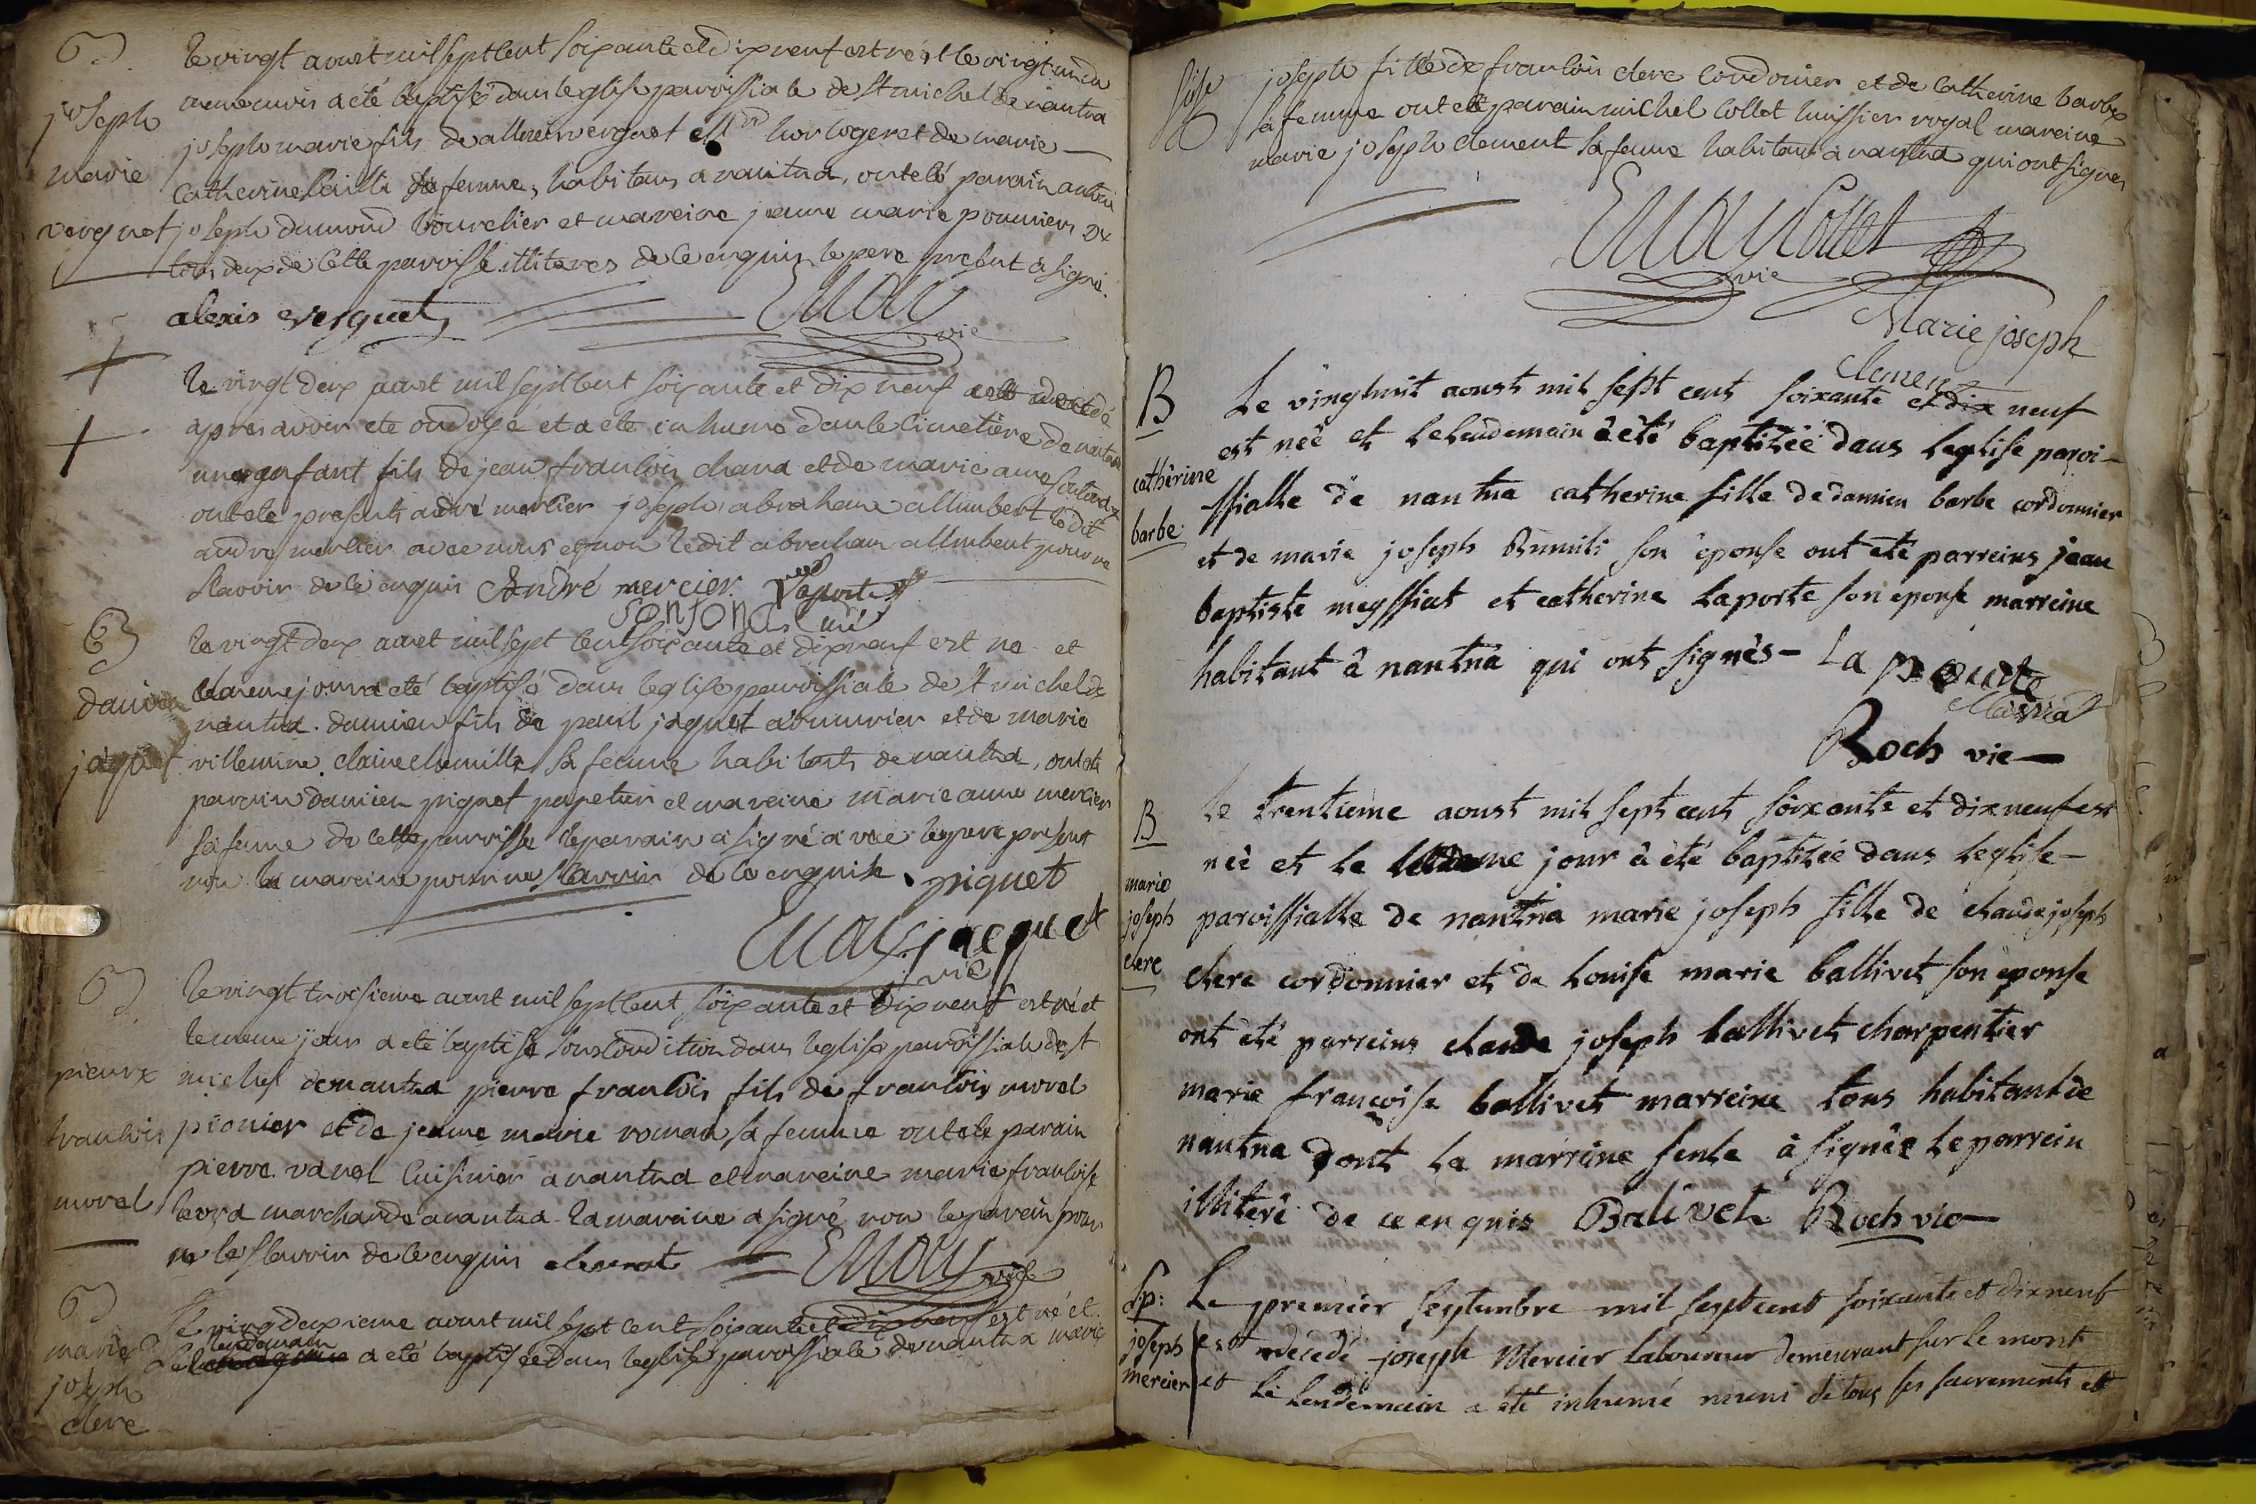 B
joseph
marie
verguet
le vingt aoust mil sept cent soixante et dix neuf est né et le vingt un du
meme mois a eté baptisé dans leglise parroissiale de st michel de nantua
joseph marie fils de alexis verguet horloger et de marie
catherine sa femme, habitans a nantua, ont eté parain antoine
joseph dumond bourelier et mareine jeanne marie pommiers
tous deux de cette paroisse illiteres de ce enquis le pere present a signé.
alexis verguet
Emoy
vie
le vingt deux aoust mil sept cent soixante et dix neuf est decedé
apres avoir eté ondoyé et a eté inhumé dans le cimetiere de nantua
un enfant fils de jean francois chana et de marie anne
ont eté presents andré mercier joseph abraham allimbert le dit
andre mercier avec nous et non ledit abraham allimbert pour ne
scavoir de ce enquis André mercier
sonfona curé
B
damien
jaquet
le vingt deux aoust mil sept cent soixante et dix neuf est né et
le meme jour a eté baptisé dans leglise parroissiale de st michel de
nantua. damien fils de paul jaquet armurier et de marie
villemine claire sa femme habitants de nantua, ont eté
parain damien piquet papetier et mareine marie anne mercier
sa femme de cette parroisse le parain a signé avec le pere present
non la mareine pour ne scavoir de ce enquise. piquet
Emoy jacquet
vie
B
pierre
francois
morel
le vingt troisieme aoust mil sept cent soixante et dix neuf est né et
le meme jour a eté baptisé sous condition dans leglise parroissiale de st
michel de nantua pierre francois fils de francois morel
pionier et de jeanne marie roman sa femme ont eté parain
pierre varel cuisinier a nantua et mareine marie francoise
marchande a nantua la mareine a signé non le parein pour
ne le scavoir de ce enquis
Emoy
vie
B
marie
joseph
clere
Le vingt deuxieme aoust mil sept cent soixante et dix neuf est né et
le lendemain a eté baptisée dans leglise parroissiale de nantua marie
joseph fille de francois clere cordonier et de catherine barbe
sa femme ont eté parain michel collet huissier royal mareine
marie joseph clement sa femme habitans a nantua qui ont signés
Emoy Collet
vie
Marie joseph
clemen
B
cathèrine
barbe
Le vinghuit aoust mil sept cent soixante et dix neuf
est née et le lendemain à été baptizée dans leglise paroi-
ssialle de nantua catherine fille de damien barbe cordonnier
et de marie joseph son eponse ont eté parreins jean
baptiste meyssiat et catherine laporte son eponse marreine
habitant â nantua qui ont signès - La porte
Massiat
Roch vie
B
marie
joseph
clere
le trentieme aoust mil sept cent soixante et dix neuf est
née et le meme jour à été baptizée dans leglise-
paroissialle de nantua marie joseph fille de claude joseph
clere cordonnier et de Louise marie ballivet son eponse
ont été parreins claude joseph ballivet charpentier
marie françoise ballivet marreine tous habitant de
nantua dont la marreine seule à signée le parrein
illiteré de ce enquis Balivet Roch vie
Sp:
joseph
mercier
Le premier septembre mil sept cent soixante et dix neuf
est décedé joseph Mercier laboureur demeurant sur le mont
et le lendemain a été inhumé muni de tous les sacrements et